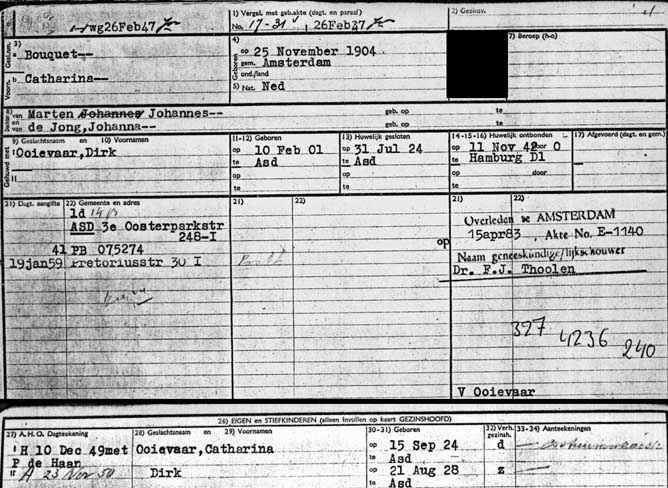 wg26Feb47
1) Vergel. met geb.akte (dagt. en paraaf)
No. 17-31 26Feb37
2) Gezinsv.
3)
a Bouquet--
b Catharina--
4)
op 25 November 1904
gem. Amsterdam
ond./land
5) Nat. Ned
7) Beroep (h-o)
van Marten Johannes Johannes-- geb. op te
en van de Jong,Johanna-- geb. op te
9) Geslachtsnaam en 10) Voornamen
Ooievaar,Dirk
11-12) Geboren
op 10 Feb 01
te Asd
op
te
13) Huwelijk gesloten
op 31 Jul 24
te Asd
op
te
14-15-16) Huwelijk ontbonden
op 11 Nov 42 door O
te Hamburg Dl
op door
te
17) Afgevoerd (dagt. en gem.)
21) Dagt. aangifte 22) Gemeente en adres
1d
ASD 3e Oosterparkstr
248-I
41 PB 075274
19jan59 Pretoriusstr 30 I
21) 22)
21) 22)
op Overleden te AMSTERDAM
15apr83 , Akte No. E-1140
Naam geneeskundige/lijkschouwer
Dr. F.J. Tholen
327 4236 240
V Ooievaar
26) EIGEN en STIEFKINDEREN (alleen invullen op kaart GEZINSHOOFD)
27) A.H.O. Dagtekening
28) Geslachtsnaam en 29) Voornamen
30-31) Geboren
32) Verh. gezinsh.
33-34) Aantekeningen
H 10 Dec 49met Ooievaar,Catharina op 15 Sep 24 d
P de Haan te Asd
A 23 Nov 50 Dirk op 21 Aug 28 z
te Asd